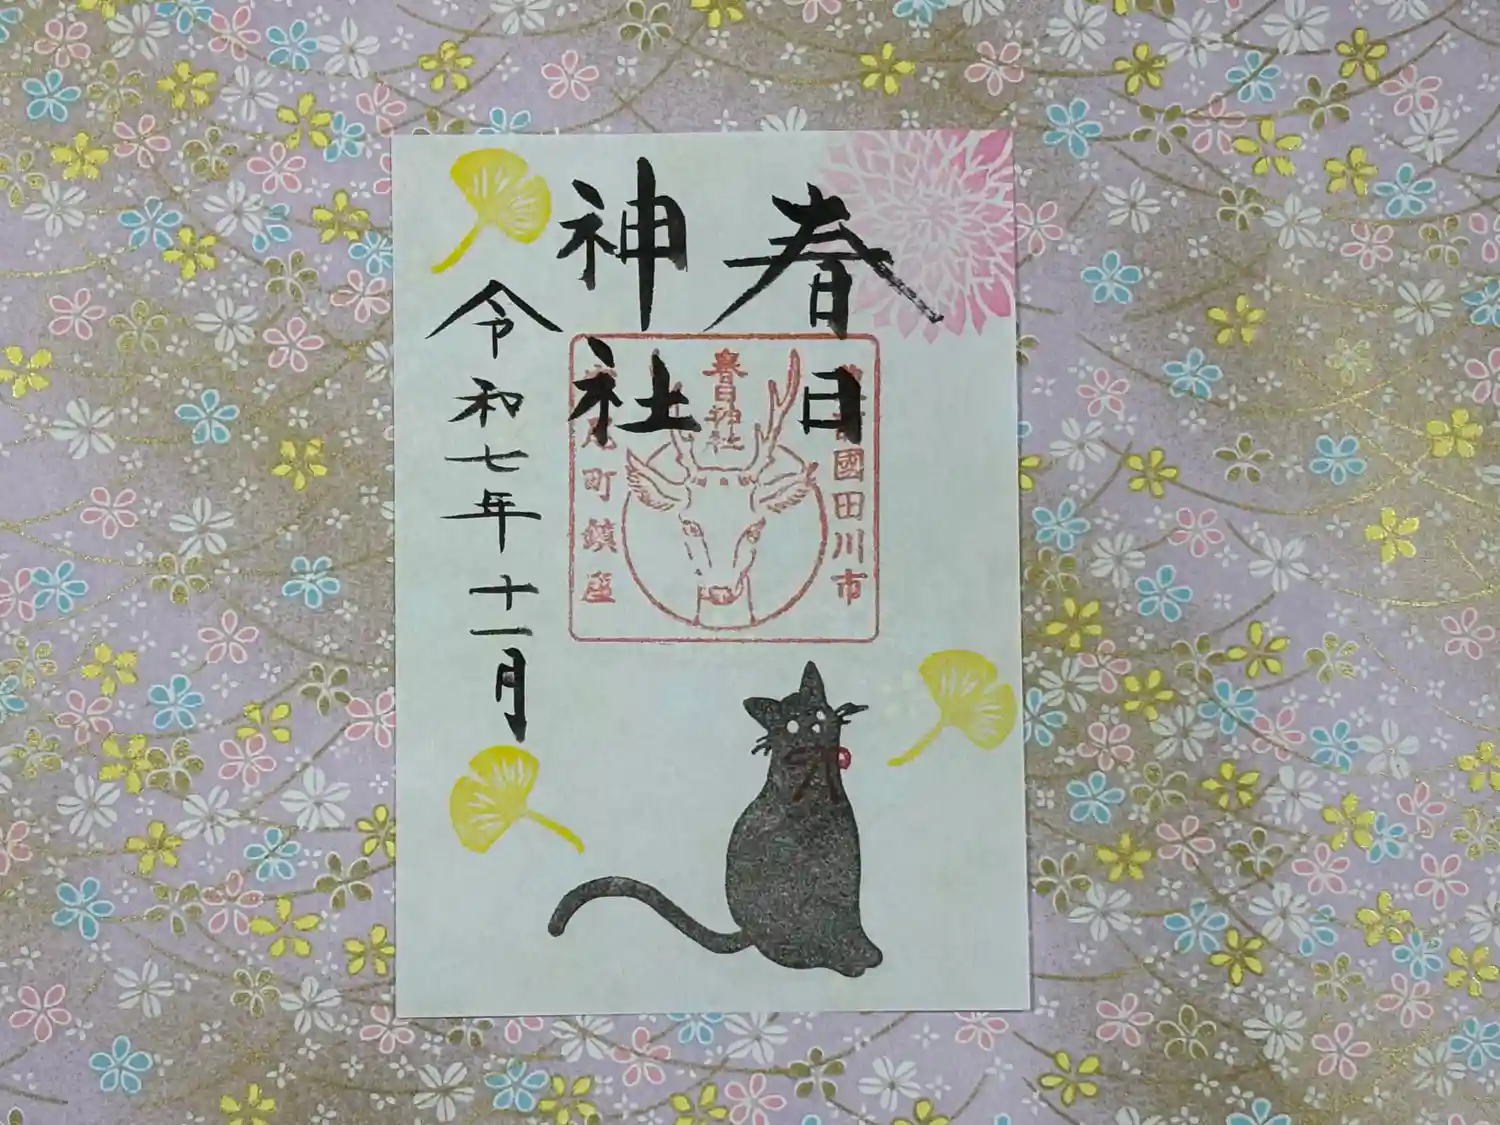 春日
神社
令和七年十一月
春日神社
國田川市
町鎮座